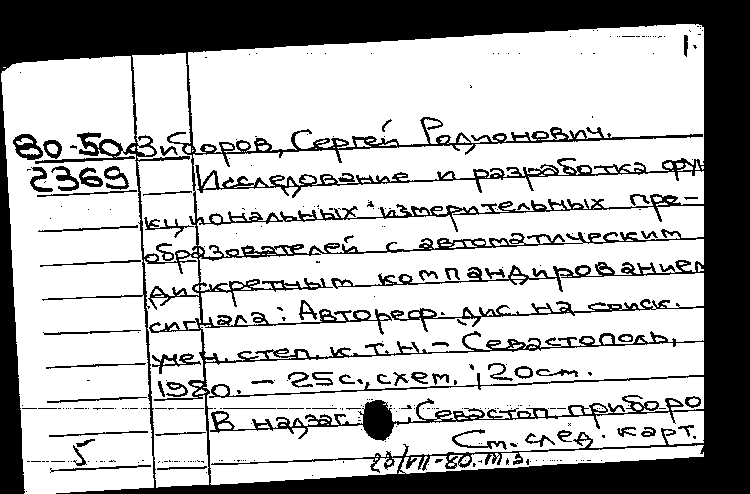 1.
80-50 Зиборов, Сергей Родионович.
2369 Исследование и разработка фун
кциональных измерительных пре-
образователей с автоматическим
дискретным компандированием
сигнала: Автореф. дис. на соиск.
учен. степ. к.т.н. - Севастополь,
1980. - 25 с., схем.; 20 см.
В надзаг.: Севастоп. приборо
См. след. карт.
5